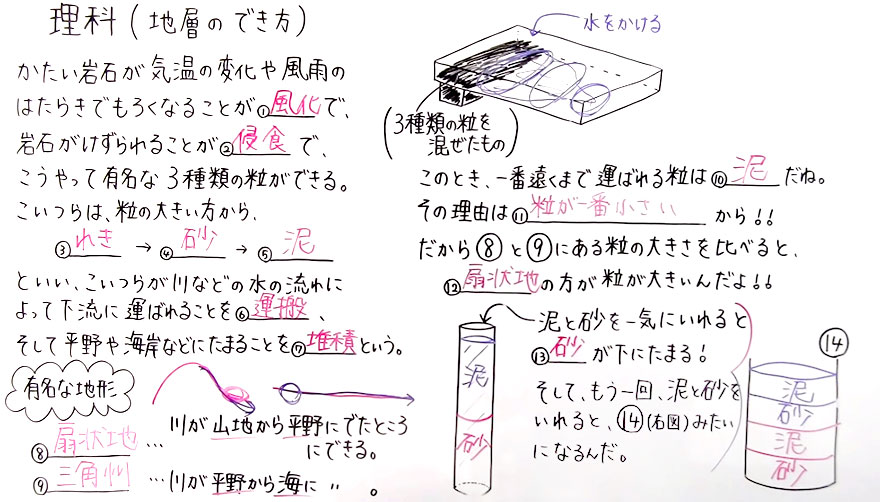 理科(地層のでき方)
かたい岩石が気温の変化や風雨の
はたらきでもろくなることが①風化で、
岩石がけずられることが②侵食で、
こうやって有名な3種類の粒ができる。
こいつらは、粒の大きい方から、
③れき→④砂→⑤泥
といい、こいつらが川などの水の流れに
よって下流に運ばれることを⑥運搬、
そして平野や海岸などにたまることを⑦堆積という。
有名な地形
⑧扇状地…川が山地から平野にでたところ
にできる。
⑨三角州…川が平野から海に〃。
水をかける
(3種類の粒を
混ぜたもの)
このとき、一番遠くまで運ばれる粒は⑩泥だね。
その理由は⑪粒が一番小さいから!!
だから⑧と⑨にある粒の大きさを比べると、
⑫扇状地の方が粒が大きいんだよ!!
泥
砂
泥と砂を一気にいれると
⑬砂が下にたまる!
そして、もう一回、泥と砂を
いれると、⑭(右図)みたい
になるんだ。
⑭
泥
砂
泥
砂